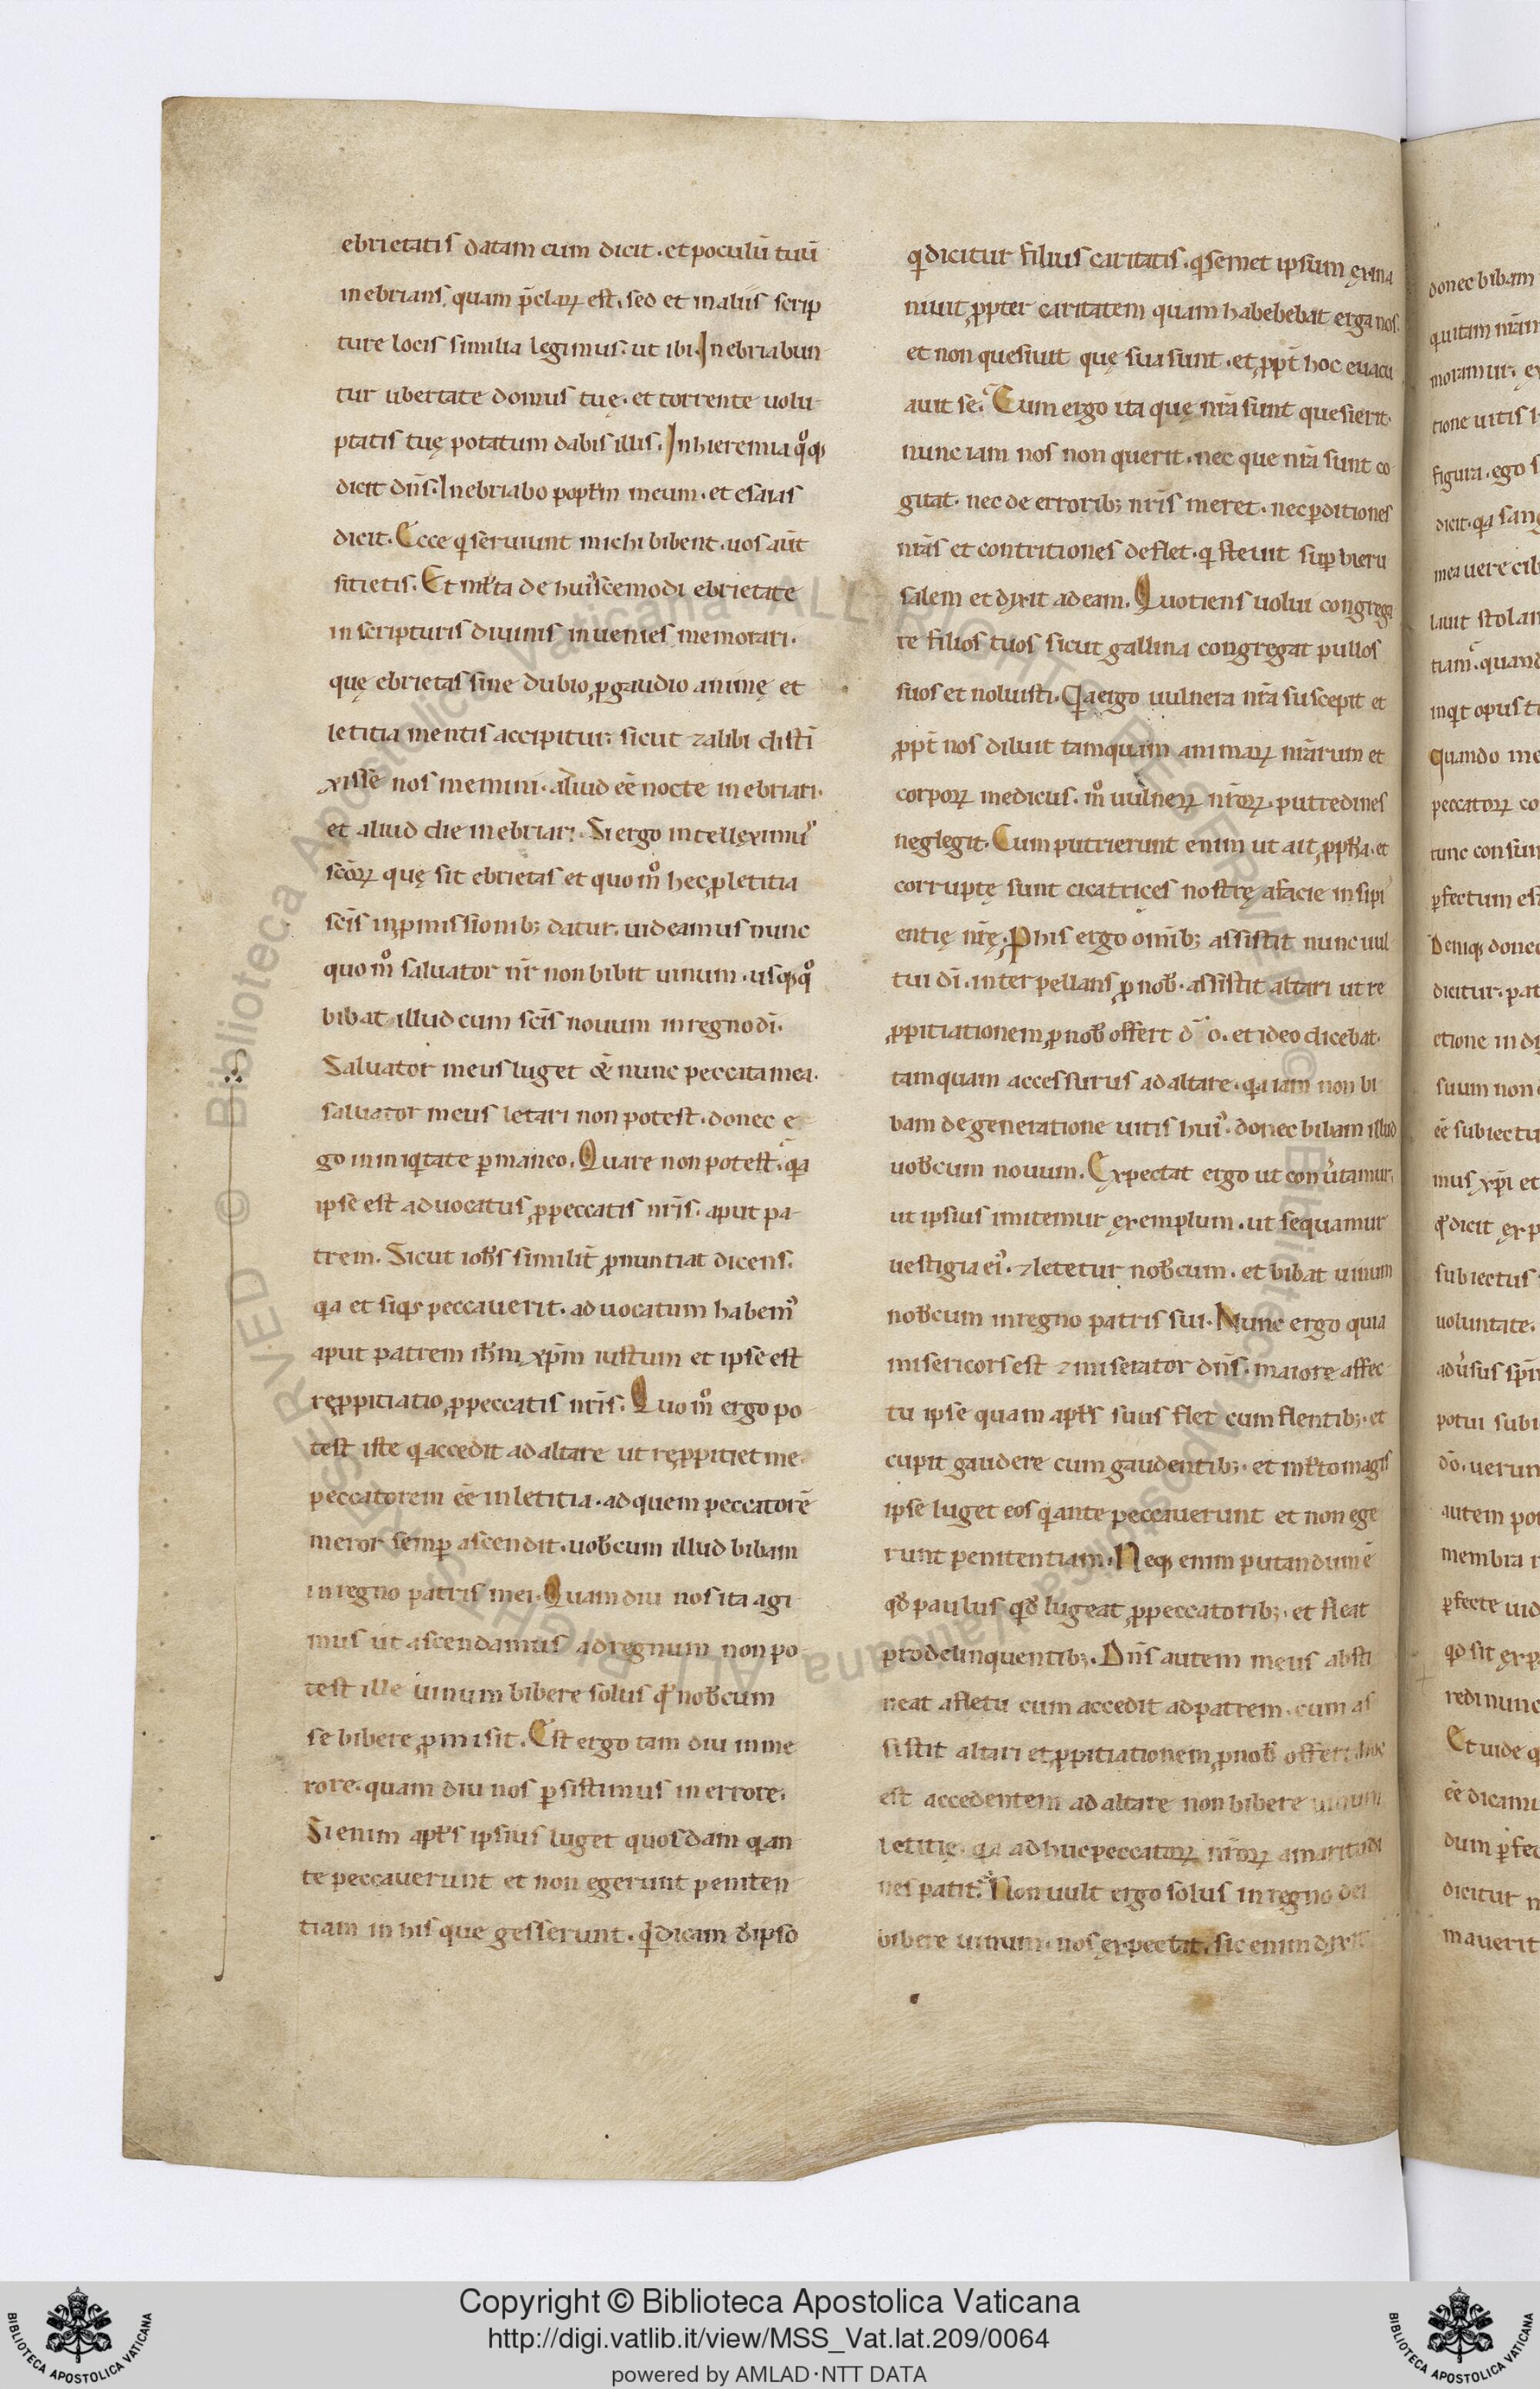 ebrietatis datam cum dicit · et poculū tuū
inebrians, quam p̄claꝝ est, sed et in aliis scrip
ture locis similia legimus · ut ibi · Inebriabun
tur ubertate domus tuę · et torrente uolu
ptatis tuę potatum dabis illis · In hieremia qͦꝙ
dicit dn̄s · Inebriabo popłm meum · et esaias
dicit · Ecce q̇ seruiunt michi bibent · uos aūt
sitietis · Et młta de huiꝰscemodi ebrietate
in scripturis diuinis inuenies memorari ·
quę ebrietas sine dubio ꝓ gaudio animę et
letitia mentis accipitur · sicut ⁊ alibi disti
xisse nos memini · aliud eē nocte inebriari ·
et aliud die inebriari · Si ergo intellęximꝰ
scōꝝ quę sit ebrietas et quo mͦ hec ꝓ letitia
scīs in ꝓmissionib; datur · uideamus nunc
quo mͦ saluator nr̄ non bibit uinum · usꝙ qͦ
bibat illud cum scīs nouum in regno dī ·
Saluator meus luget & nunc peccata mea ·
saluator meus letari non potest · donec e
go in iniqͥtate ꝑmaneo · Quare non potest · qͣa
ipse est aduocatus ꝓ peccatis nr̄is · aput pa
trem · Sicut ioħs similit̄ ꝓnuntiat dicens ·
qͣa et siqͥs peccauerit · aduocatum habemꝰ
aput patrem iħm xp̄m iustum et ipse est
ręꝓpitiatio ꝓ peccatis nr̄is · Quo mͦ ergo po
test iste qͥ accedit ad altare ut ręꝓpitiet me
peccatorem eē in letitia · ad quem peccatorē
meror semꝑ ascendit · uob̄cum illud bibam
in regno patris mei · Quamdiu nos ita agi
mus ut ascendamus ad regnum non po
test ille uinum bibere solus qđ nob̄cum
se bibere ꝓmisit · Est ergo tam diu in me
rore · quam diu nos ꝑsistimus in errore ·
Si enim apłs ipsius luget quosdam qͥ an
te peccauerunt et non egerunt peniten
tiam in his que gesserunt · qͥd dicam đ ipso
qͥ dicitur filius caritatis · qͥ semet ipsum ęxina
niuit ꝓpter caritatem quam habebebat erga nos ·
et non quesiuit quę sua sunt · et ꝓpt̄ hoc euacu
auit se · Cum ergo ita quę nr̄a sunt quesierit ·
nunc iam nos non querit · nec que nr̄a sunt co
gitat · nec de errorib; nr̄is meret · nec ꝑditiones
nr̄as et contritiones deflet · qͥ fleuit suꝑ hieru
salem et dixit ad eam · Quotiens uolui congrega
re filios tuos sicut gallina congregat pullos
suos et noluisti · Qͥa ergo uulnera nr̄a suscepit et
ꝓpt̄ nos diluit tamquam animaꝝ nr̄arum et
corpoꝝ medicus · mͦ uulneꝝ nr̄oꝝ · putredines
neglegit · Cum putrierunt enim ut ait ꝓpħa · et
corruptę sunt cicatrices nostrę a facie insipi
entię nr̄ę · P his ergo omīb; assistit nunc uul
tui dī · interpellans ꝓ nob̄ · assistit altari ut re
ꝓpitiationem ꝓ nob̄ offert d o · et ideo dicebat ·
tamquam accessurus ad altare · qͣa iam non bi
bam de generatione uitis huiꝰ · donec bibam illud
uob̄cum nouum · Ęxpectat ergo ut conùtamur ·
ut ipsius imitemur ęxemplum · ut sequamur
uestigia eiꝰ · ⁊ letetur nob̄cum · et bibat uinum
nob̄cum in regno patris sui · Nunc ergo quia
misericors est ⁊ miserator dn̄s · maiore affec
tu ipse quam apłs suus flet cum flentib; · et
cupit gaudere cum gaudentib; · et młto magis
ipse luget eos qͥ ante peccauerunt et non ege
runt penitentiam · Neꝙ enim putandum ē
qđ paulus qđ lugeat ꝓ peccatorib; · et fleat
pro delinquentib; · Dn̄s autem meus absti
neat a fletu cum accedit ad patrem · cum as
sistit altari et ꝓpitiationem ꝓ nob̄ offert
est accedentem ad altare non bibere uinum
letitię · qͣa adhuc peccatoꝝ nr̄oꝝ amaritudi
nes patit᷑ · Non uult ergo solus in regno dei
bibere uinum · nos ęxpectat · sic enim dixit
donec bibam
dicitur · pat
suum non
subiectus
uoluntate ·
membra
redi nunc
Et uide
mauerit
Copyright © Biblioteca Apostolica Vaticana
http://digi.vatlib.it/view/MSS_Vat.lat.209/0064
powered by AMLAD·NTT DATA
BIBLIOTECA APOSTOLICA VATICANA
BIBLIOTECA APOSTOLICA VATICANA